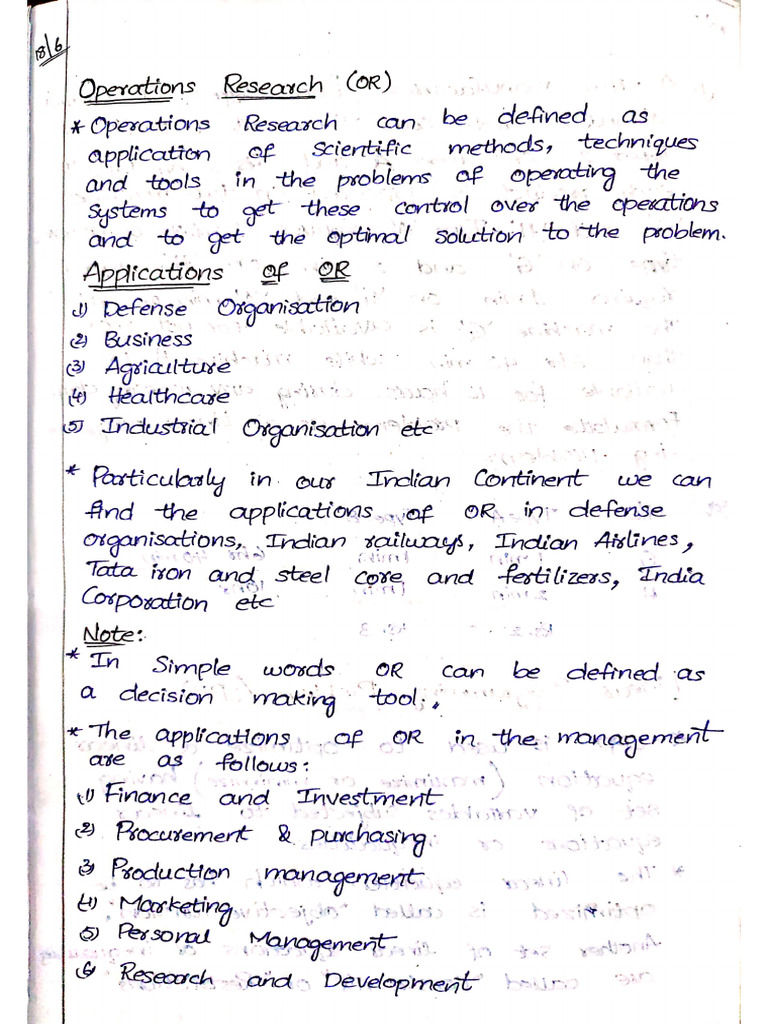 18/6
Operations Research (OR)
* Operations Research can be defined as
application of scientific methods, techniques
and tools in the problems of operating the
systems to get these control over the operations
and to get the optimal solution to the problem.
Applications of OR
1) Defense Organisation
2) Business
3) Agriculture
4) Healthcare
5) Industrial Organisation etc
* Particularly in our Indian Continent we can
find the applications of OR in defense
organisations, Indian railways, Indian Airlines,
Tata iron and steel core and fertilizers, India
Corporation etc
Note:
* In Simple words OR can be defined as
a decision making tool.
* The applications of OR in the management
are as follows:
1) Finance and Investment
2) Procurement & purchasing
3) Production management
4) Marketing
5) Personal Management
6) Research and Development